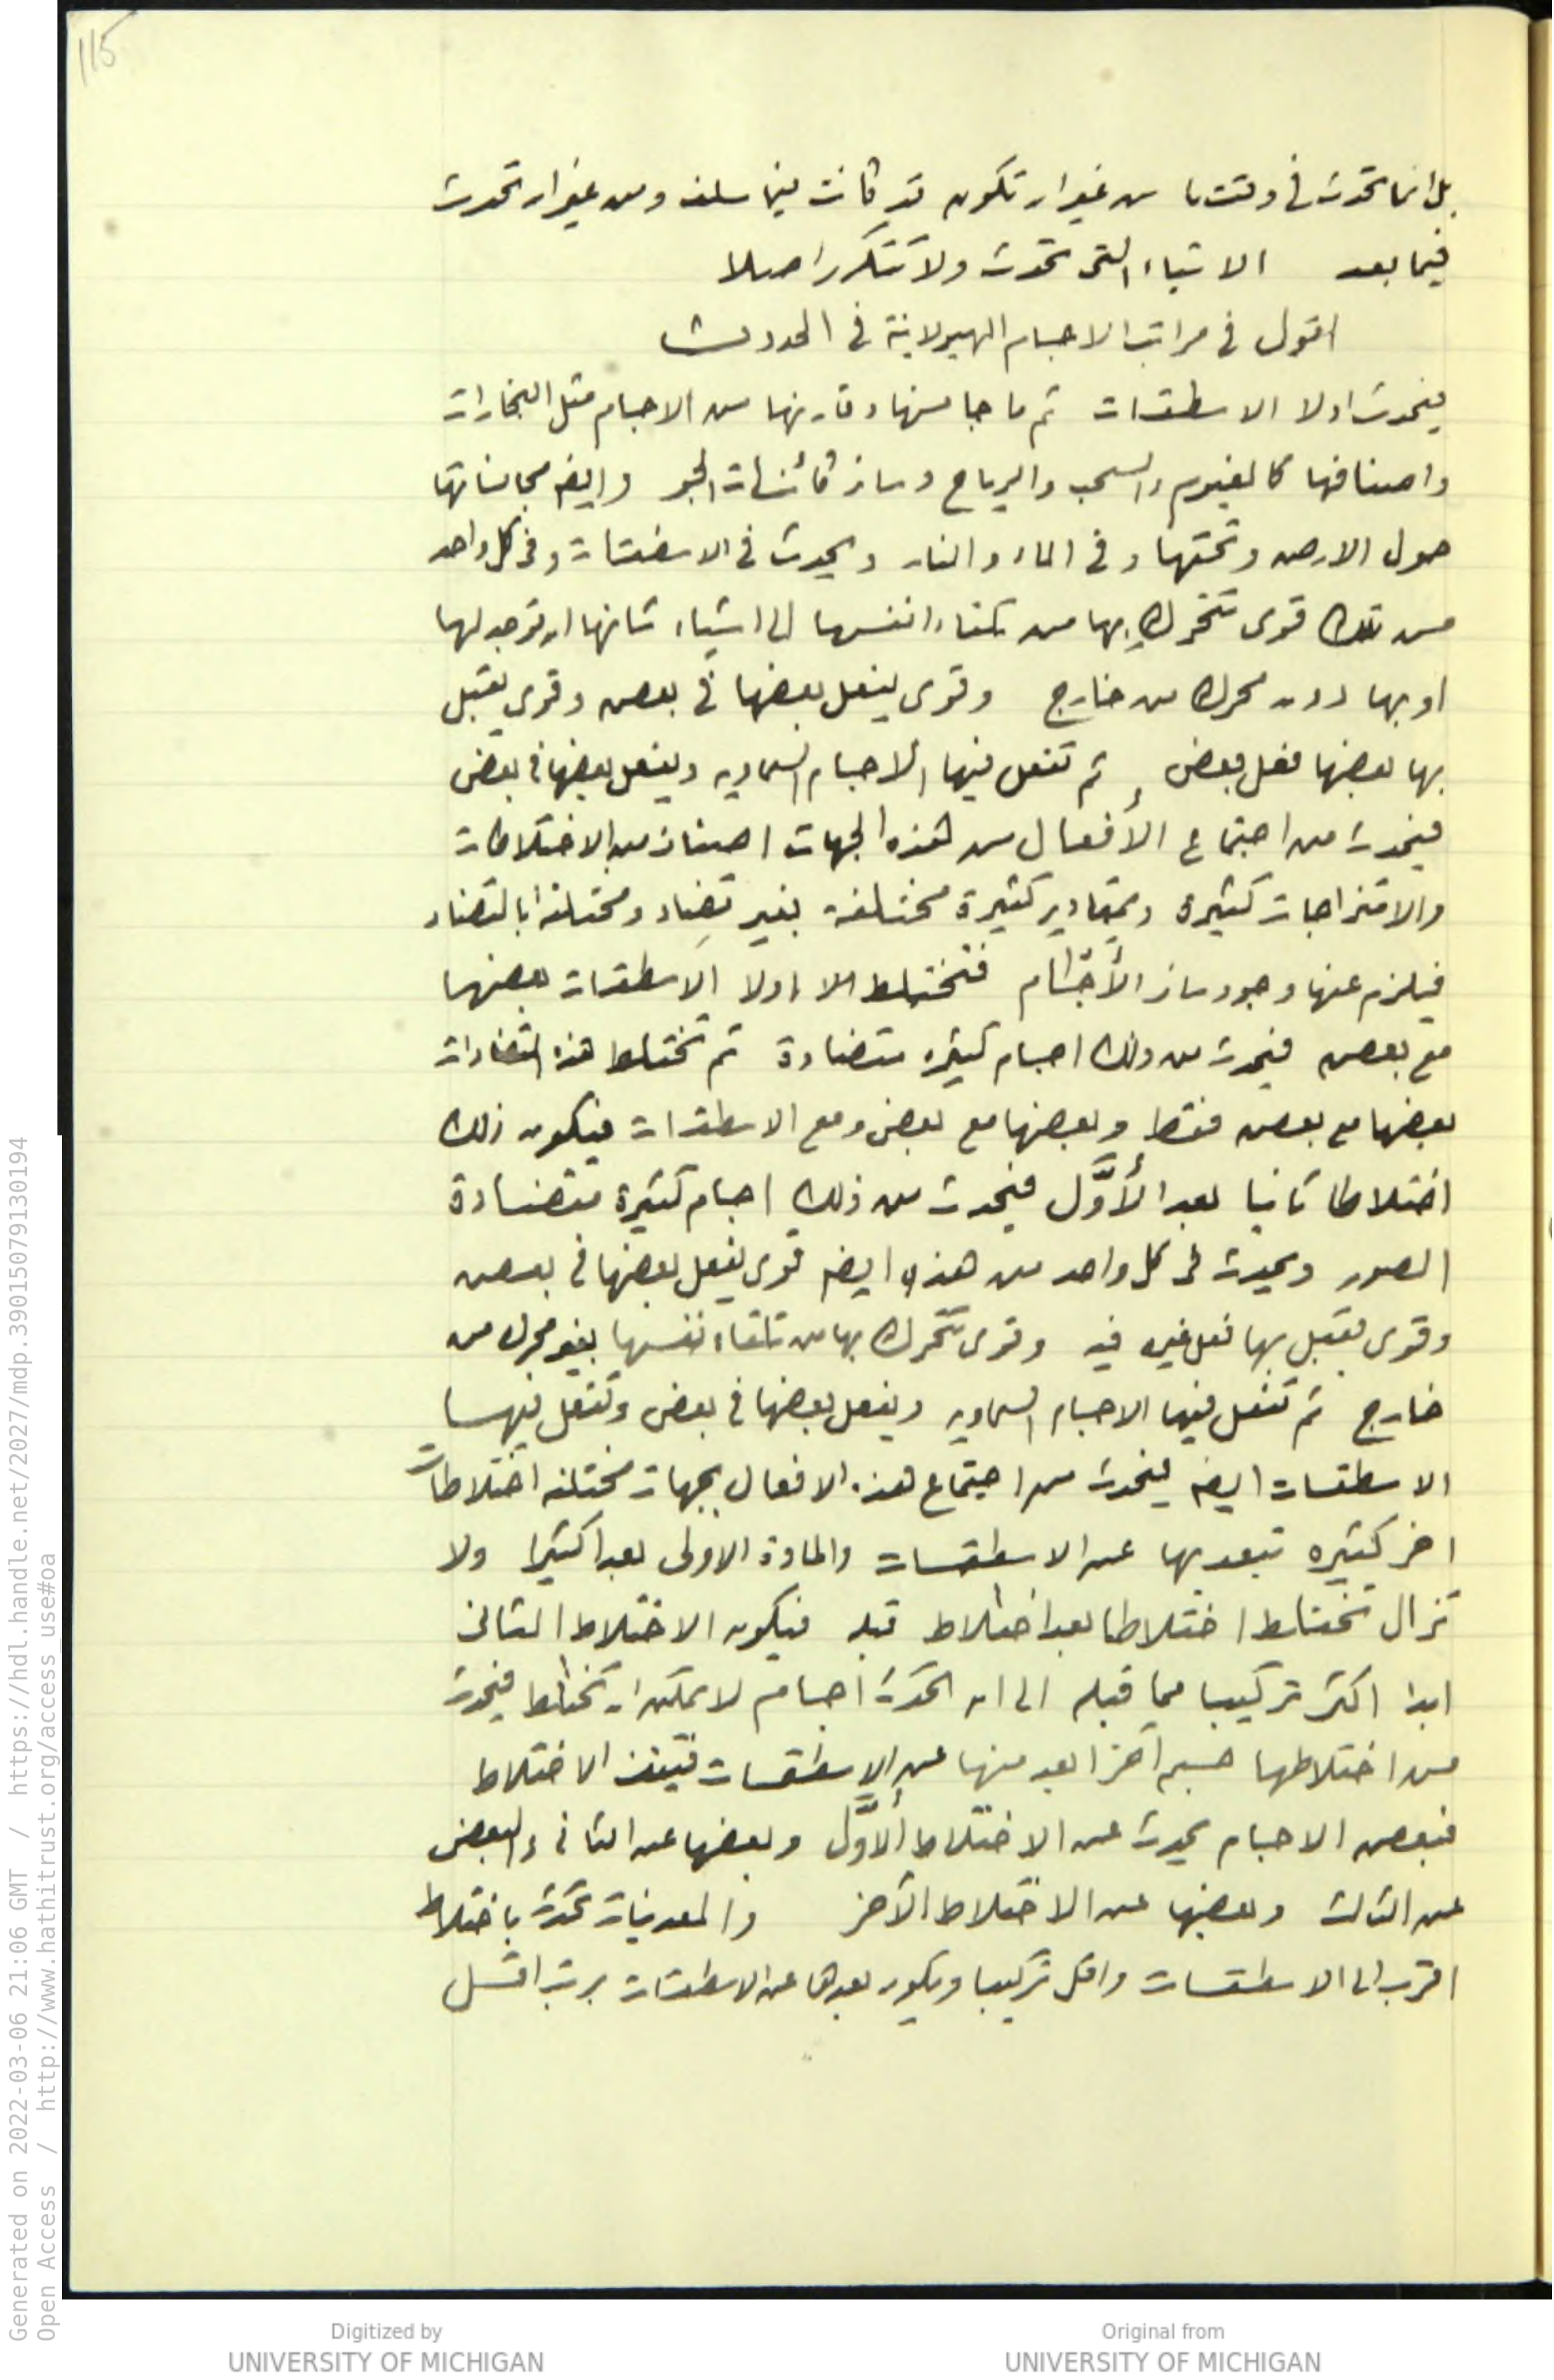 115
بل انما تحدث في وقت ما من غير ان تكون قد كانت فيما سلف ومن غير ان تحدث
فيما بعد الاشياء التي تحدث ولا تتكرر اصلا
اقول في مراتب الاجسام الهيولانية في الحدوث
فيحدث اولا الاسطقسات ثم ما جانسها وقارنها من الاجسام مثل البخارات
واصنافها كالغيوم والسحب والرياح وسائر كائنات الجو وايضا مجانساتها
حول الارض وتحتها وفي الماء والنار ويحدث في الاسطقسات وفي كل واحد
من تلك قوى تتحرك بها من تلقاء انفسها الى اشياء شانها ان توجد لها
او بها دون محرك من خارج وقوى يفعل بعضها في بعض وقوى يقبل
بها بعضها فعل بعض ثم تفعل فيها الاجسام السماويه ويفعل بعضها في بعض
فيحدث من اجتماع الأفعال من هذه الجهات اصناف من الاختلاطات
والامتزاجات كثيرة ومقادير كثيرة مختلفة بغير تضاد ومختلفة بالتضاد
فيلزم عنها وجود سائر الأجسام فتختلط اولا الاسطقسات بعضها
مع بعض فيحدث من ذلك اجسام كثيره متضادة ثم تختلط هذه المتضادات
بعضها مع بعض فقط وبعضها مع بعض ومع الاسطقسات فيكون ذلك
اختلاطا ثانيا بعد الأوَّل فيحدث من ذلك اجسام كثيرة متضادة
الصور ويحدث في كل واحد من هذه ايضا قوى يفعل بعضها في بعض
وقوى تقبل بها فعل غيره فيه وقوى تتحرك بها من تلقاء نفسها بغير محرك من
خارج ثم تفعل فيها الاجسام السماويه ويفعل بعضها في بعض وتفعل فيها
الاسطقسات ايضا فيحدث من اجتماع هذه الافعال بجهات مختلفه اختلاطات
اخر كثيره تبعد بها عن الاسطقسات والمادة الاولى بعدا كثيرا ولا
تزال تختلط اختلاطا بعد اختلاط قبله فيكون الاختلاط الثاني
ابدا اكثر تركيبا مما قبله الى ان تحدث اجسام لا يمكن ان تختلط فيحدث
من اختلاطها جسم آخر ابعد منها عن الاسطقسات فتقف الاختلاط
فبعض الاجسام يحدث عن الاختلاط الأوَّل وبعضها عن الثاني والبعض
عن الثالث وبعضها عن الاختلاط الآخر والمعدنيات تحدث باختلاط
اقرب الى الاسطقسات واقل تركيبا ويكون بعدها عن الاسطقسات برتب اقل
Generated on 2022-03-06 21:06 GMT / https://hdl.handle.net/2027/mdp.39015079130194
Open Access / http://www.hathitrust.org/access_use#oa
Digitized by
UNIVERSITY OF MICHIGAN
Original from
UNIVERSITY OF MICHIGAN